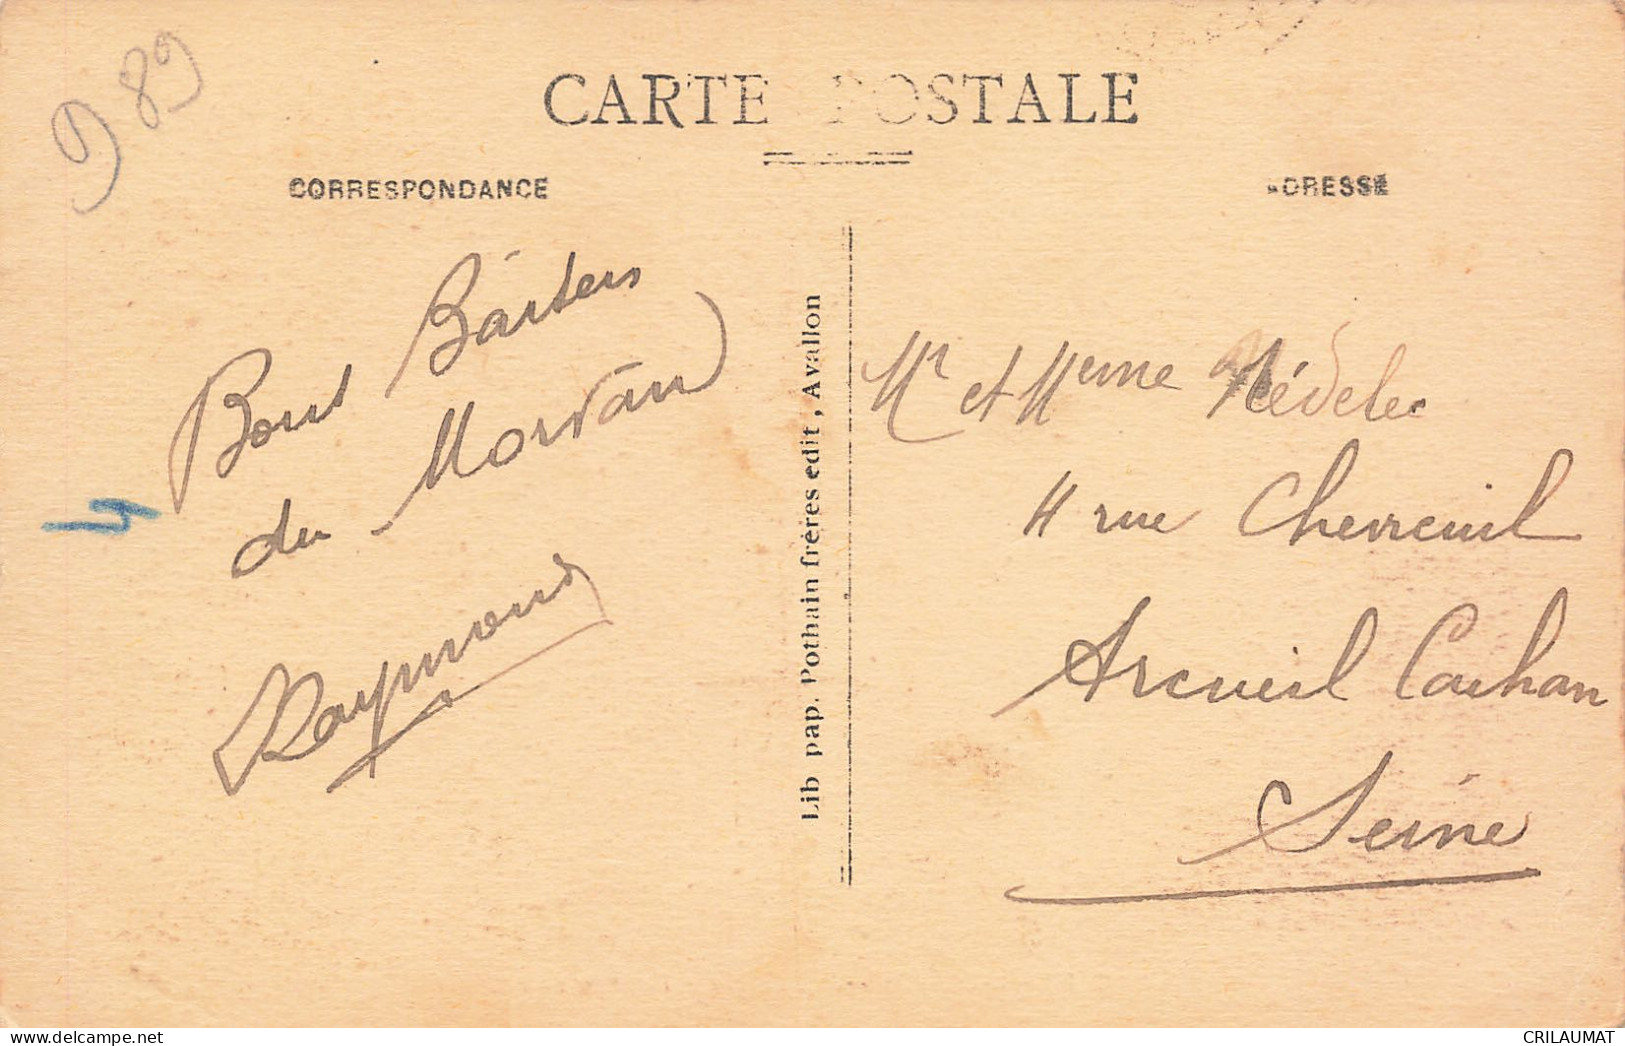 D 89
CARTE POSTALE
CORRESPONDANCE
ADRESSE
Bons Baisers
du Morvan
Raymond
Lib pap. Pothain frères edit, Avallon
Mr et Meme Nédelec
4 rue Chevreuil
Arcueil Cachan
Seine
www.delcampe.net
CRILAUMAT